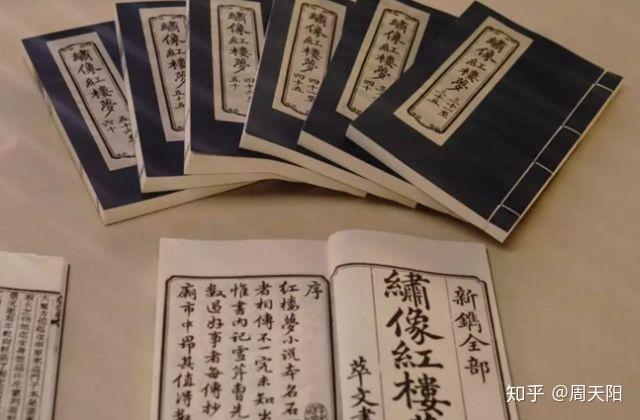 繡像紅樓夢
五十六至
六十
繡像紅樓夢
五十五
繡像紅樓夢
四十六至
五十
繡像紅樓夢
四十一至
四十五
繡像紅樓夢
四十
繡像紅樓夢
三十一至
三十五
新鐫全部
繡像紅樓
萃文書
序
紅樓夢小說本名石
者相傳不一究未知出
惟書內記雪芹曹先
數過好事者每傳抄
廟市中昂其值得數
知乎 @周天阳